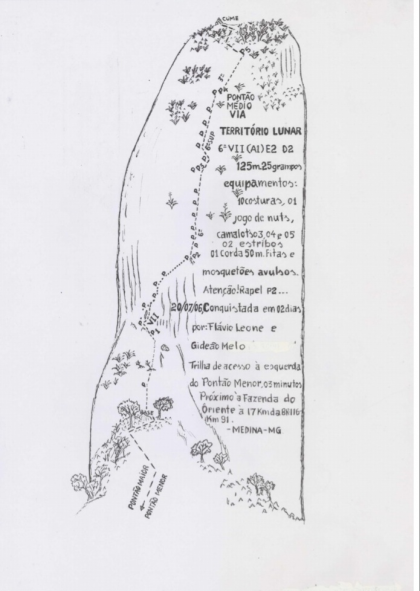 CUME
PONTÃO
MÉDIO
VIA
TERRITÓRIO LUNAR
6º VII (A1) E2 D2
125m.25grampos
equipamentos:
10costuras, 01
jogo de nuts,
camalots03,04 e 05
02 estribos
01 Corda 50m. Fitas e
mosquetões avulsos.
Atenção! Rapel P2...
20/07/06, Conquistada em 02 dias
por: Flávio Leone e
Gideão Melo
Trilha de acesso à esquerda
do Pontão Menor, 03 minutos
Próximo à Fazenda do
Oriente à 17 Km da BR116
Km 91.
-MEDINA-MG
VII
6º
BASE
PONTÃO MAIOR
PONTÃO MENOR